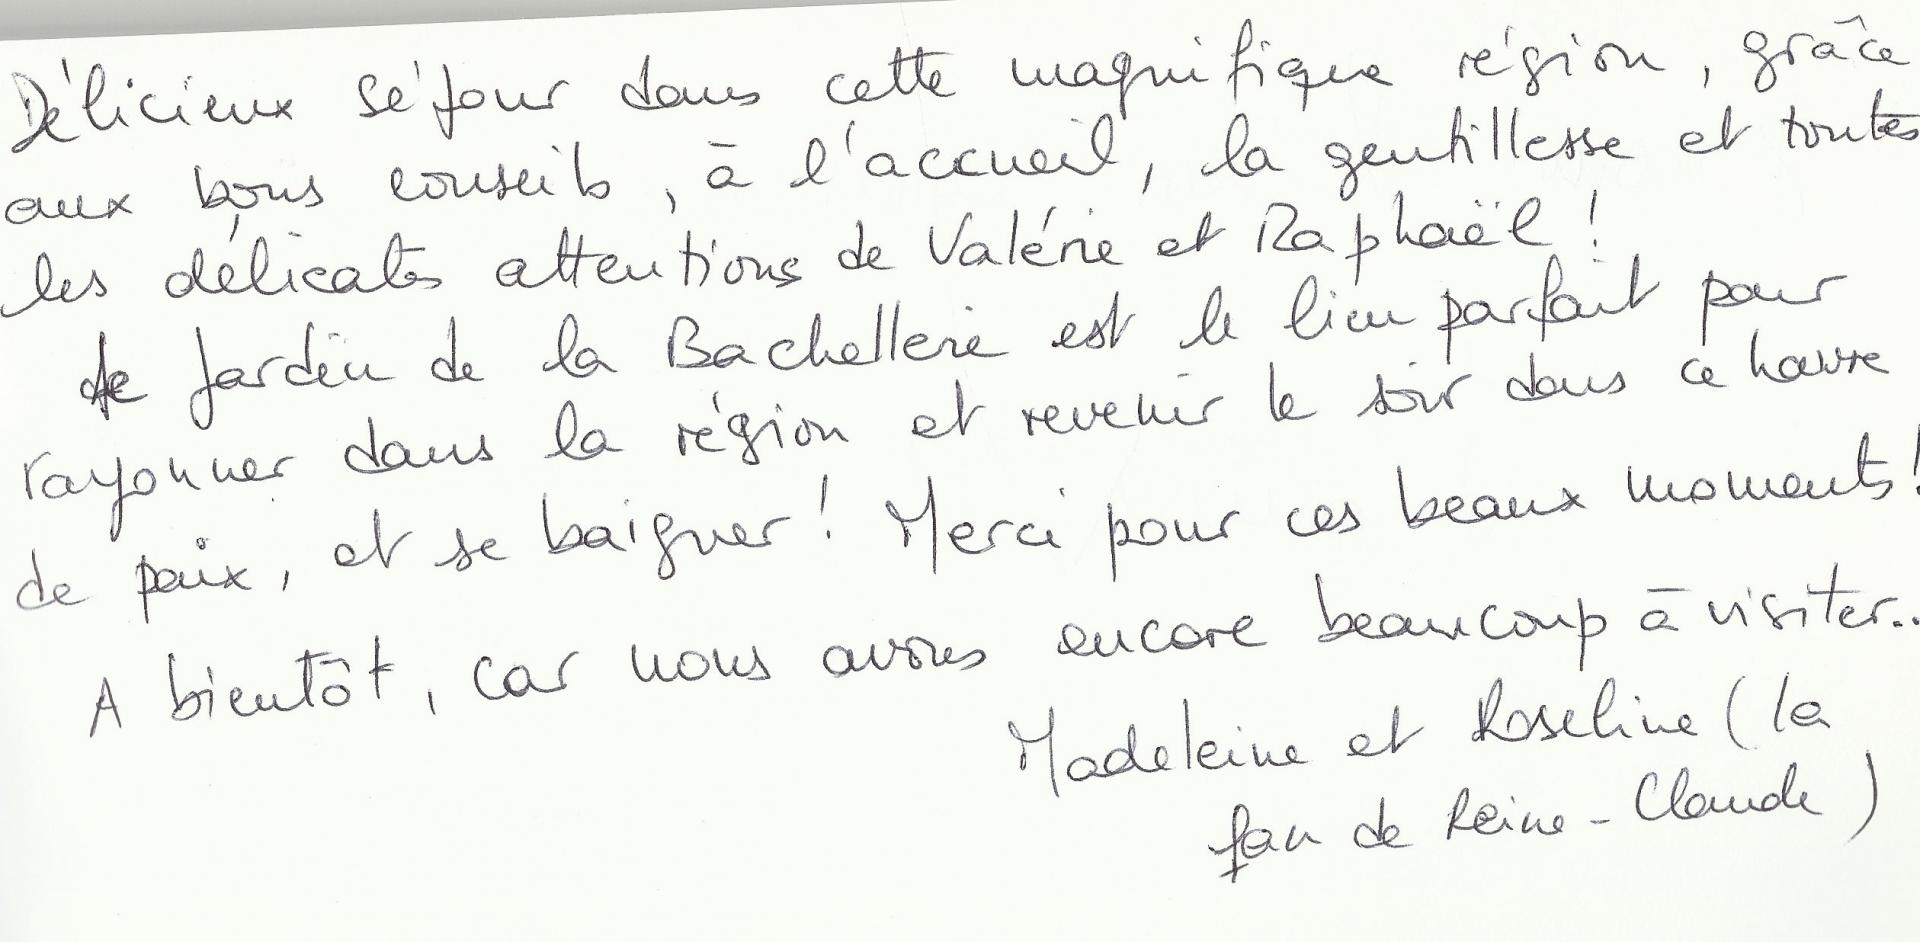 Délicieux séjour dans cette magnifique région, grâce
aux bons conseils, à l'accueil, la gentillesse et toutes
les délicates attentions de Valérie et Raphaël !
Le Jardin de la Bachellerie est le lieu parfait pour
rayonner dans la région et revenir le soir dans ce havre
de paix, et se baigner ! Merci pour ces beaux moments !
A bientôt, car nous avons encore beaucoup à visiter..
Madeleine et Roseline (la
fan de Reine-Claude)